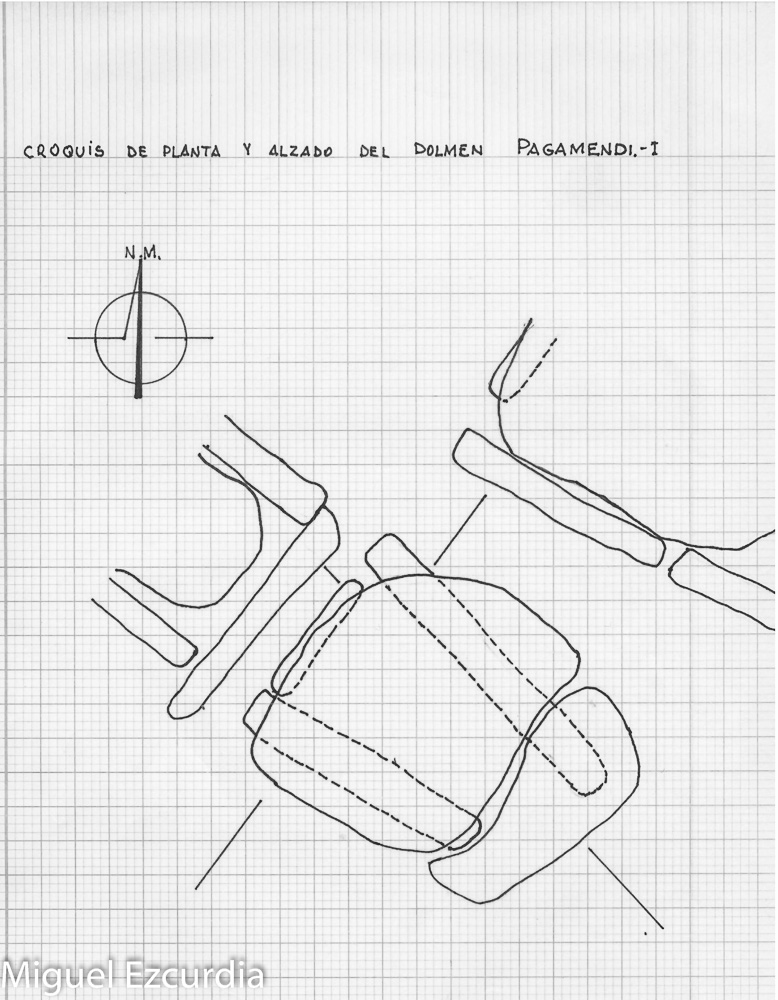 CROQUIS DE PLANTA Y ALZADO DEL DOLMEN PAGAMENDI.-I
N.M.
Miguel Ezcurdia